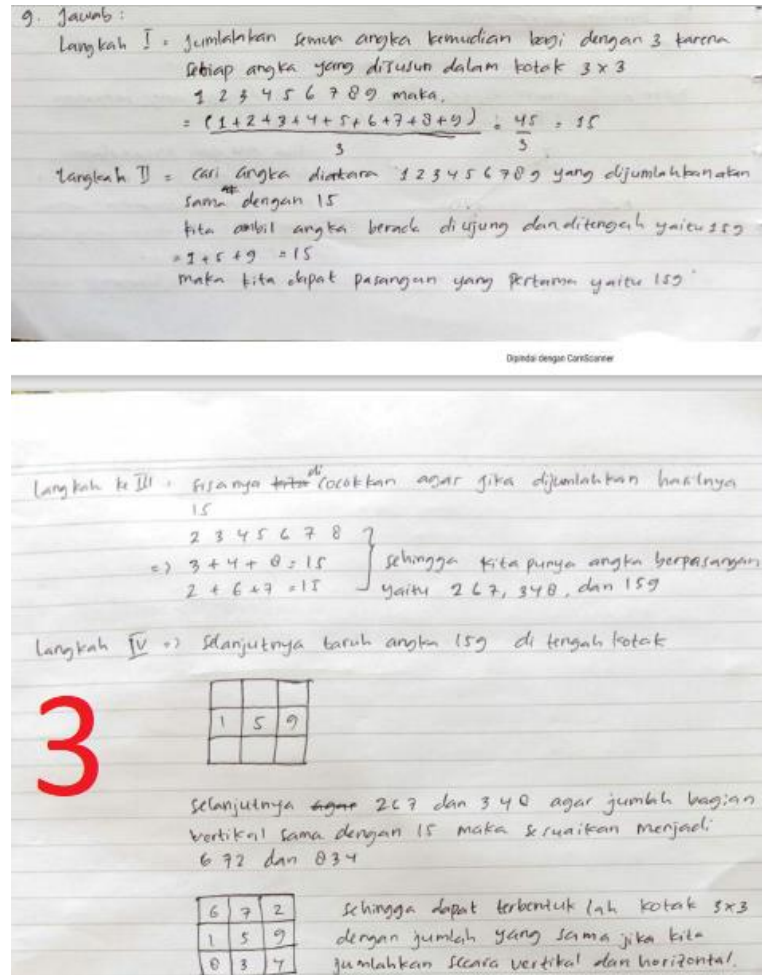 9. Jawab :
Langkah I = Jumlahkan semua angka kemudian bagi dengan 3 karena
setiap angka yang disusun dalam kotak 3 x 3
1 2 3 4 5 6 7 8 9 maka,
= (1+2+3+4+5+6+7+8+9) = 45 = 15
3 3
Langkah II = Cari angka diantara 1 2 3 4 5 6 7 8 9 yang dijumlahkan akan
sama dengan 15
kita ambil angka berada di ujung dan ditengah yaitu 159
= 1 + 5 + 9 = 15
maka kita dapat pasangan yang pertama yaitu 159
Dipindai dengan CamScanner
Langkah ke III = sisanya di cocokkan agar jika dijumlahkan hasilnya
15
2 3 4 5 6 7 8
=> 3 + 4 + 8 = 15 sehingga kita punya angka berpasangan
2 + 6 + 7 = 15 yaitu 267, 348, dan 159
Langkah IV => Selanjutnya taruh angka 159 di tengah kotak
1 5 9
3
selanjutnya agar 267 dan 348 agar jumlah bagian
vertikal sama dengan 15 maka sesuaikan menjadi
672 dan 834
6 7 2 sehingga dapat terbentuk lah kotak 3x3
1 5 9 dengan jumlah yang sama jika kita
8 3 4 jumlahkan secara vertikal dan horizontal.